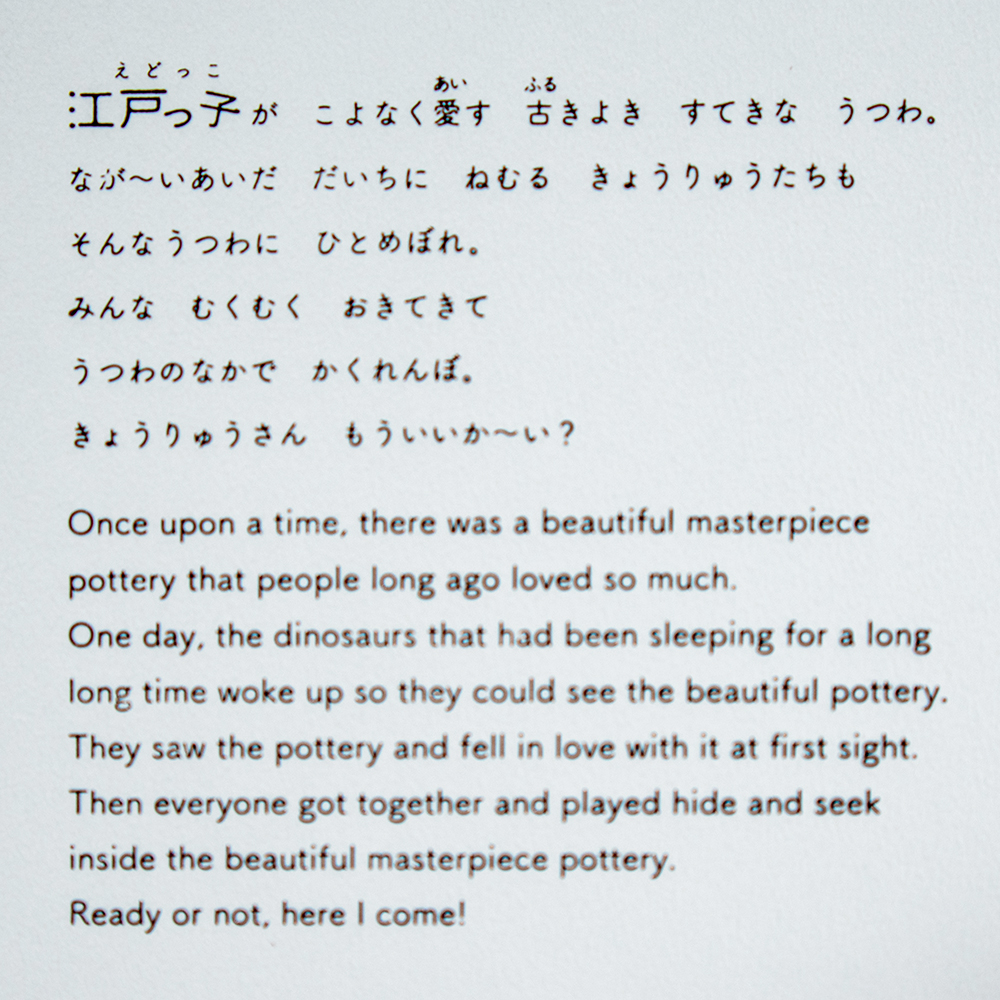 えどっこ あい ふる
江戸っ子が こよなく愛す 古きよき すてきな うつわ。
なが〜いあいだ だいちに ねむる きょうりゅうたちも
そんなうつわに ひとめぼれ。
みんな むくむく おきてきて
うつわのなかで かくれんぼ。
きょうりゅうさん もういいか〜い？
Once upon a time, there was a beautiful masterpiece
pottery that people long ago loved so much.
One day, the dinosaurs that had been sleeping for a long
long time woke up so they could see the beautiful pottery.
They saw the pottery and fell in love with it at first sight.
Then everyone got together and played hide and seek
inside the beautiful masterpiece pottery.
Ready or not, here I come!